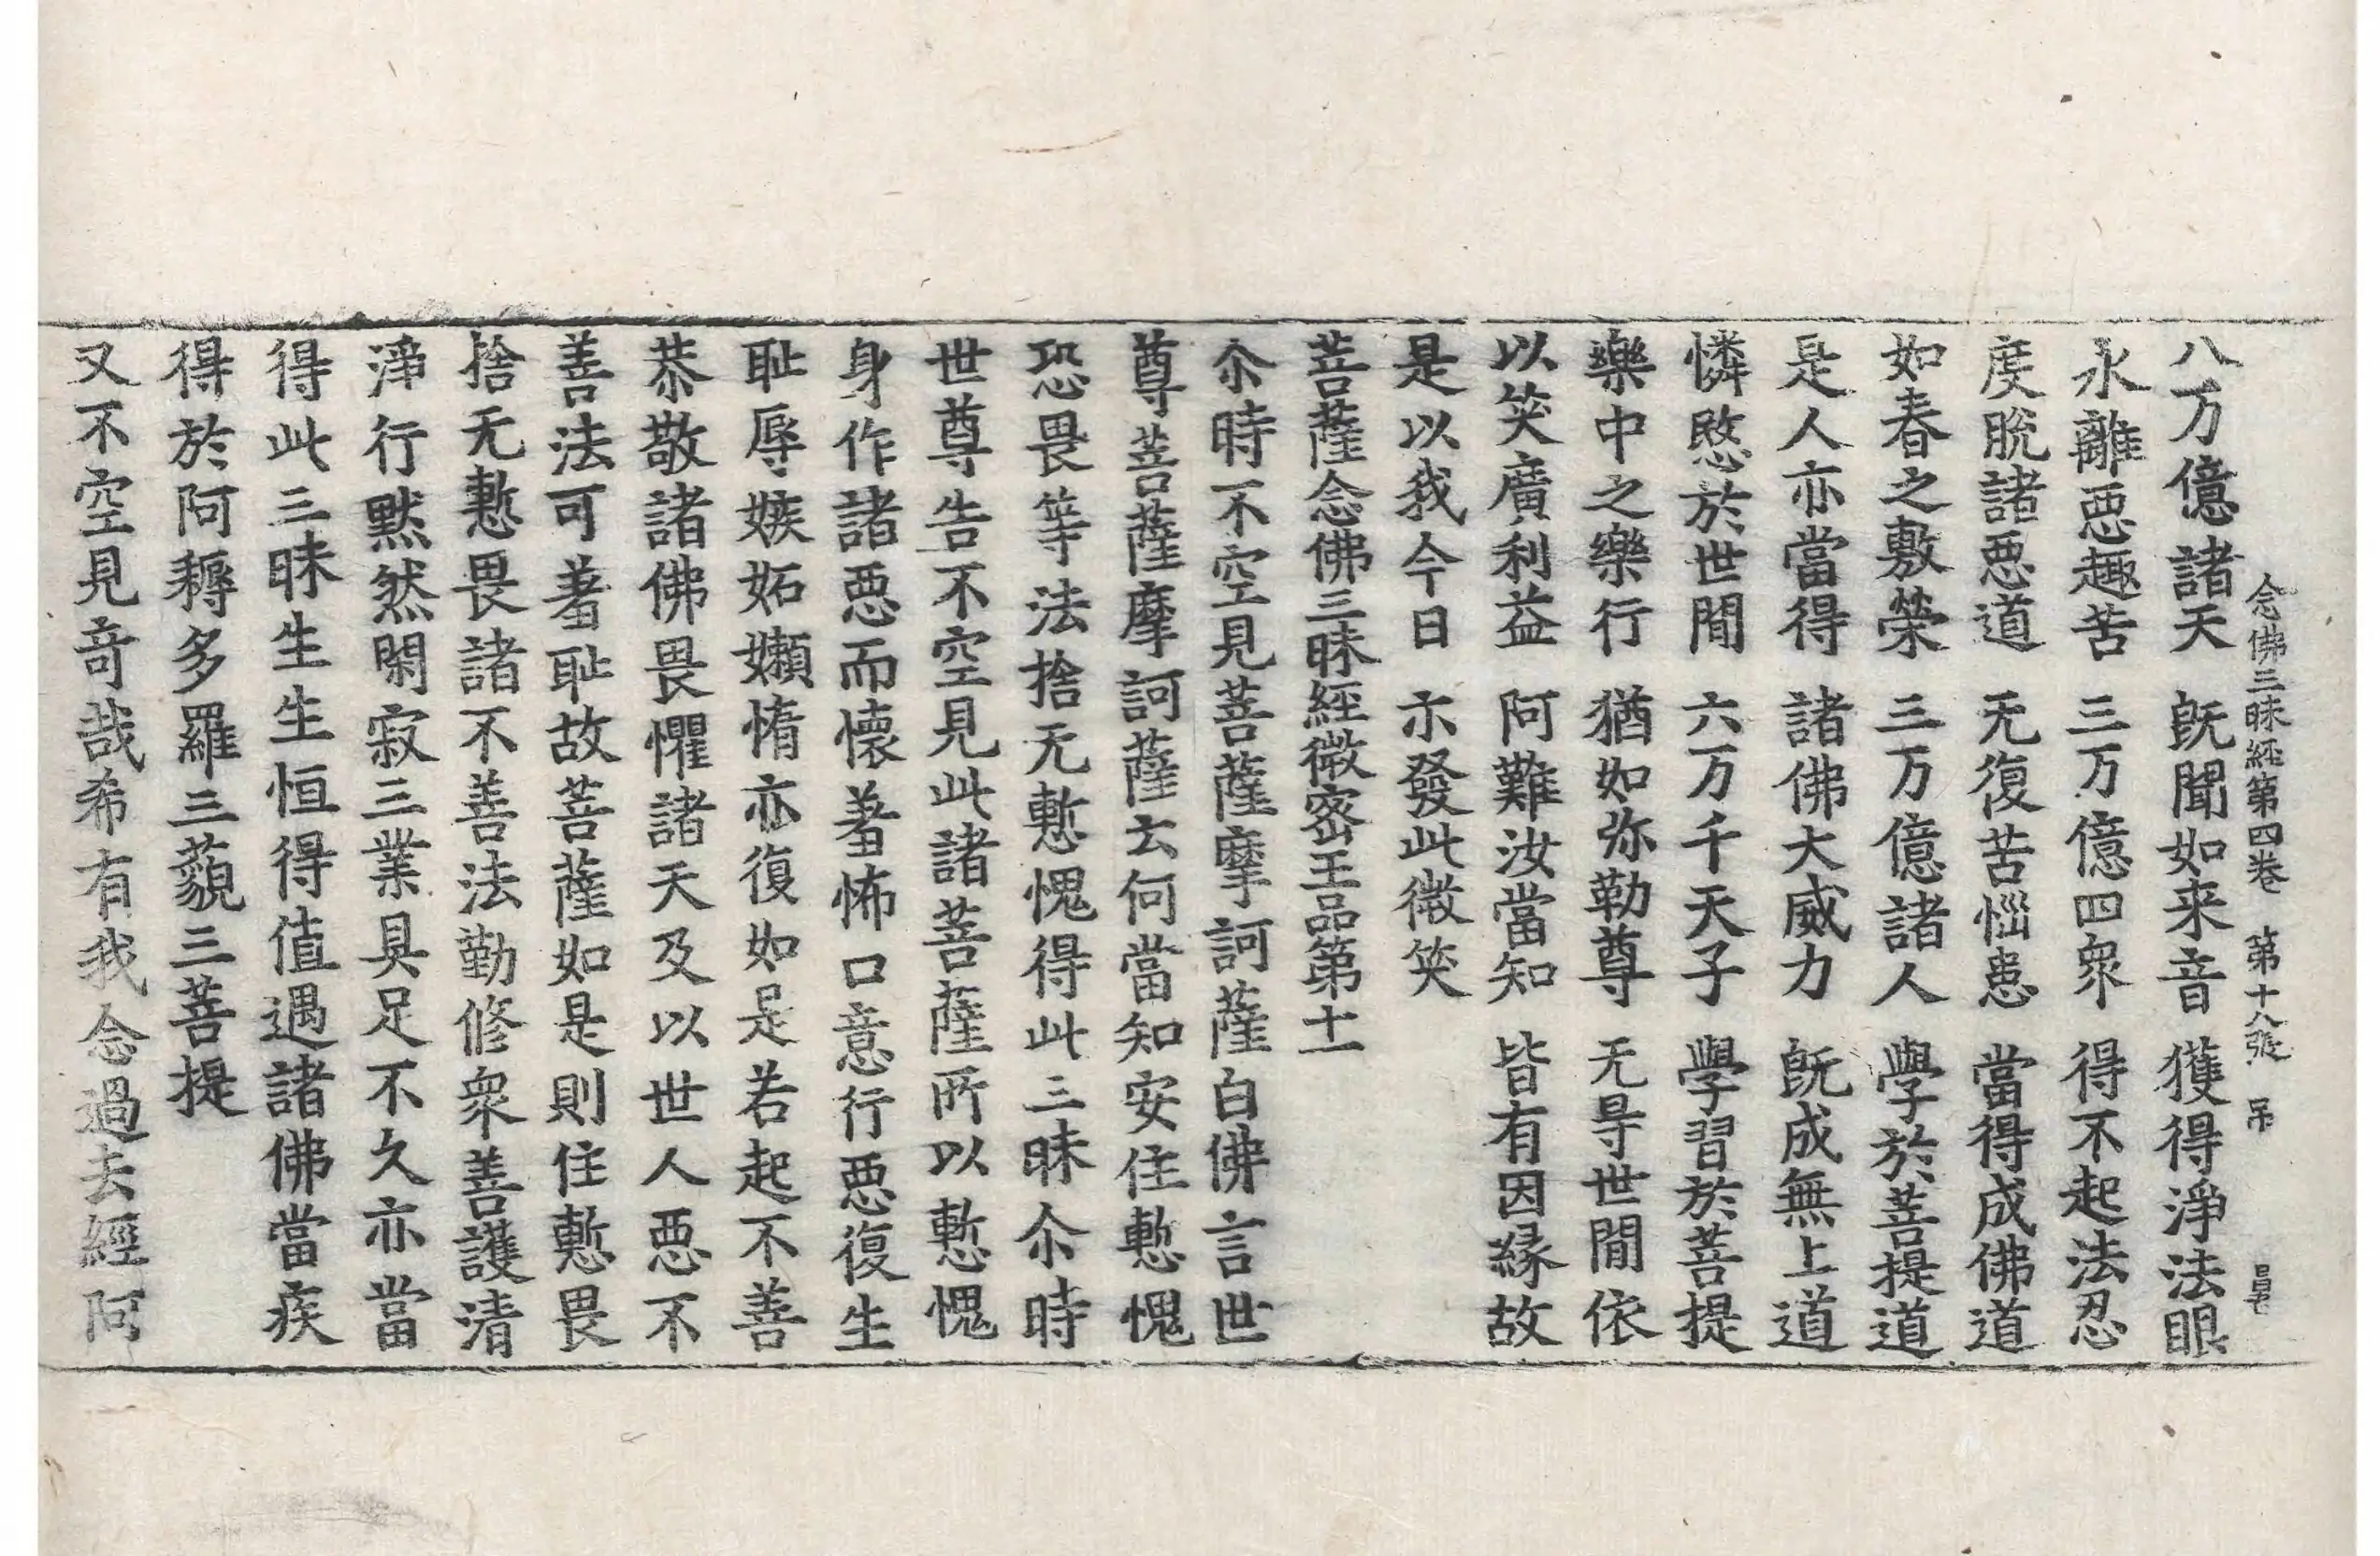 念佛三昧經第四卷 第十八張 吊
八万億諸天 既聞如来音 獲得淨法眼
永離惡趣苦 三万億四衆 得不起法忍
度脫諸惡道 无復苦惱患 當得成佛道
如春之敷榮 三万億諸人 學於菩提道
是人亦當得 諸佛大威力 既成無上道
憐愍於世間 六万千天子 學習於菩提
樂中之樂行 猶如弥勒尊 无㝵世間依
以笑廣利益 阿難汝當知 皆有因緣故
是以我今日 示發此微笑
菩薩念佛三昧經微密王品第十一
尒時不空見菩薩摩訶薩白佛言世
尊菩薩摩訶薩云何當知安住慙愧
恐畏等法捨无慙愧得此三昧尒時
世尊告不空見此諸菩薩所以慙愧
身作諸惡而懷著怖口意行惡復生
耻辱嫉妬嬾惰亦復如是若起不善
恭敬諸佛畏懼諸天及以世人惡不
善法可著耻故菩薩如是則住慙畏
捨无慙畏諸不善法勤修衆善護清
淨行默然閑寂三業具足不久亦當
得此三昧生生恒得值遇諸佛當疾
得於阿耨多羅三藐三菩提
又不空見奇哉希有我念過去經阿